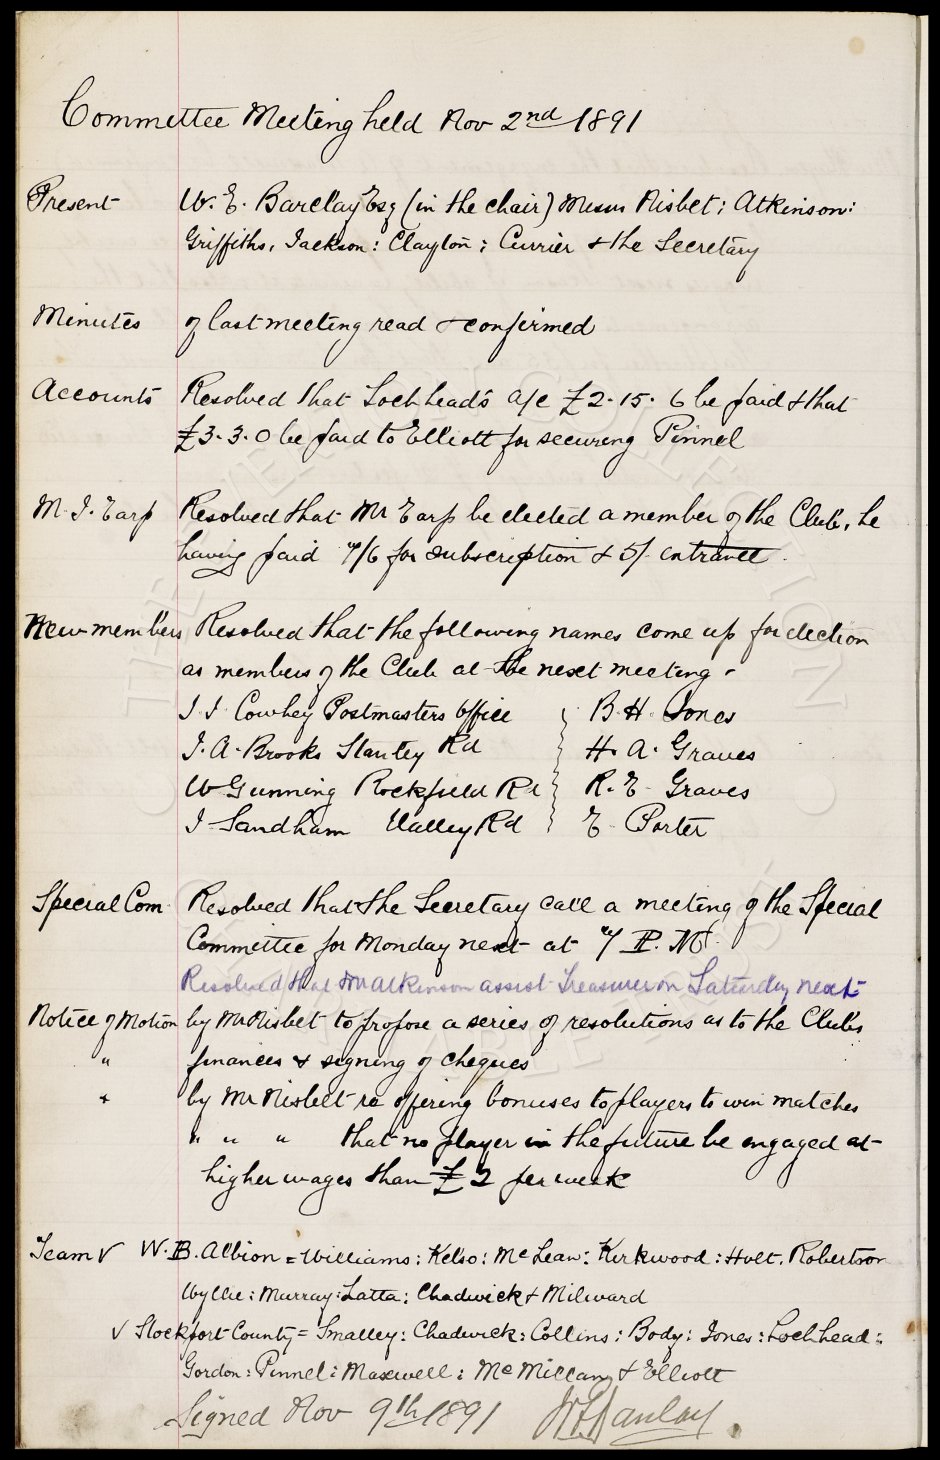 Committee Meeting held Nov 2nd 1891
Present W. E. Barclay Esq (in the chair) Messrs Nisbet; Atkinson:
Griffiths, Jackson: Clayton: Currier & the Secretary
Minutes of last meeting read & confirmed
Accounts Resolved that Lochhead's a/c £2.15.6 be paid & that
£3.3.0 be paid to Elliott for securing Pinnel
M. J. Earp Resolved that Mr Earp be elected a member of the Club, he
having paid 7/6 for subscription & 5/- entrance.
New members Resolved that the following names come up for election
as members of the Club at the next meeting -
J. J. Cowhey Postmasters Office B. H. Jones
J. A. Brooks Stanley Rd H. A. Graves
W Gunning Rockfield Rd R. E. Graves
J Sandham Valley Rd E. Porter
Special Com Resolved that the Secretary call a meeting of the Special
Committee for Monday next at 7 P.M.
Resolved that Mr Atkinson assist Treasurer on Saturday next
Notice of Motion by Mr Nisbet to propose a series of resolutions as to the Club's
" finances & signing of cheques
+ by Mr Nisbet re offering bonuses to players to win matches
" " " that no player in the future be engaged at
higher wages than £2 per week
Team √ W. B. Albion = Williams: Kelso: McLean: Kirkwood: Holt. Robertson
Wyllie: Murray: Latta: Chadwick & Milward
√ Stockport County = Smalley: Chadwick: Collins: Body: Jones: Lochhead:
Gordon: Pinnel: Maxwell: McMillan & Elliott
Signed Nov 9th 1891